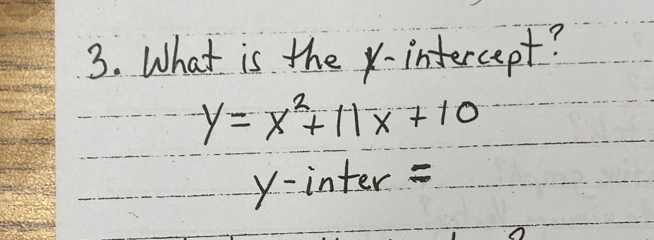 3. What is the y-intercept?
y = x²+11x+10
y-inter =